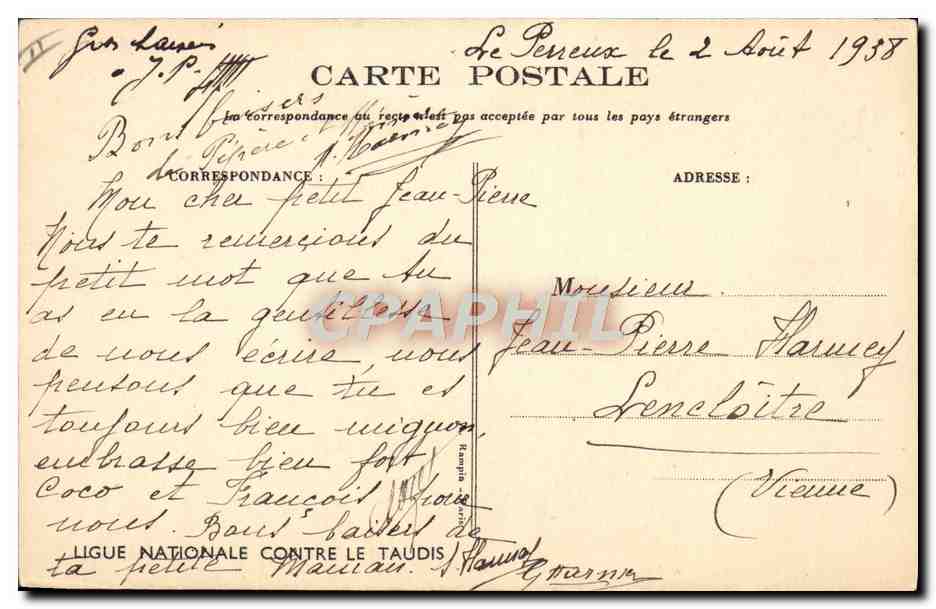 Gros baisers
Le Perreux le 2 Août 1938
J. P.
CARTE POSTALE
La correspondance au recto n'est pas acceptée par tous les pays étrangers
Bons baisers
de Pépère
CORRESPONDANCE :
ADRESSE :
Mon cher petit Jean-Pierre
Nous te remercions du
petit mot que tu
as eu la gentillesse
de nous écrire, nous
pensons que tu es
toujours bien mignon,
embrasse bien fort
Coco et François pour
nous. Bons baisers de
ta petite Maman.
Monsieur
Jean-Pierre Harmey
Lencloître
(Vienne)
CPAPHIL
Rampin - Paris
LIGUE NATIONALE CONTRE LE TAUDIS